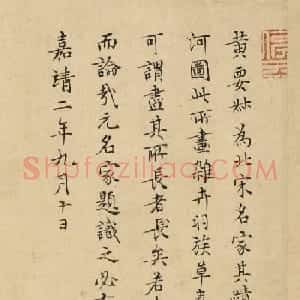 黄要叔為北宋名家其蹟
河圖此所畫雜卉羽族草
可謂盡其所長者長矣若
而論哉元名家題識之必
嘉靖二年九月十日
Shufaziliao.com